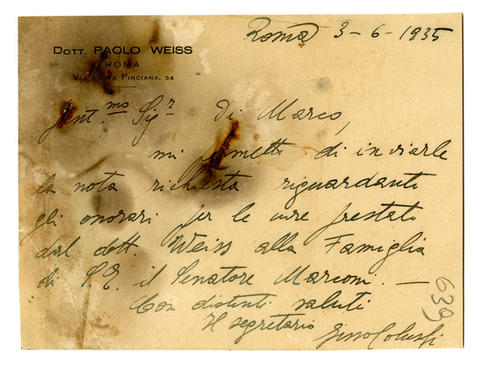 Roma 3-6-1935
Dott. PAOLO WEISS
ROMA
Via Porta Pinciana, 34
Gent.mo Sigr Di Marco,
mi permetto di inviarle
la nota richiesta riguardante
gli onorari per le cure prestate
dal dott. Weiss alla Famiglia
di S.E. il Senatore Marconi. —
Con distinti saluti
Il segretario
Gino
639